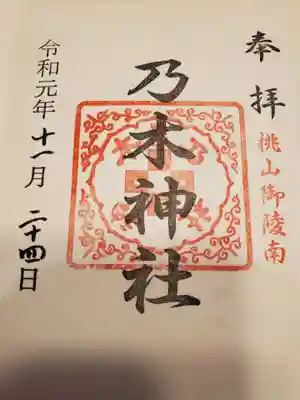 奉拝
桃山御陵南
乃木神社
令和元年十一月二十四日